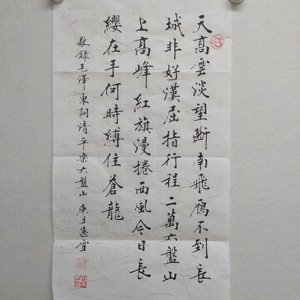 天高雲淡望斷南飛鴈不到長
城非好漢屈指行程二萬六盤山
上高峰紅旗漫捲西風今日長
纓在手何時縛住蒼龍
敬錄毛澤東詞清平樂六盤山